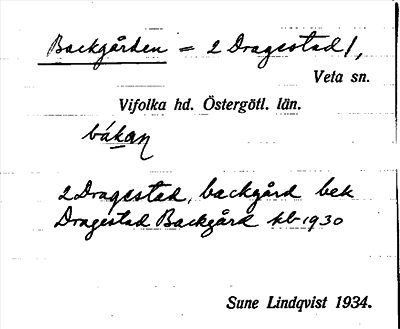 Backgården = 2 Dragestad 1,
Veta sn.
Vifolka hd. Östergötl. län.
båkan
2 Dragestad, backgård bek
Dragestad Backgård kb 1930
Sune Lindqvist 1934.